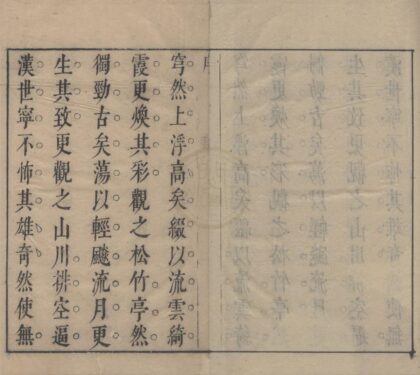 穹然上浮高矣綴以流雲綺
霞更煥其彩觀之松竹亭然
獨勁古矣蕩以輕飈流月更
生其致更觀之山川排空逼
漢世寧不怖其雄奇然使無